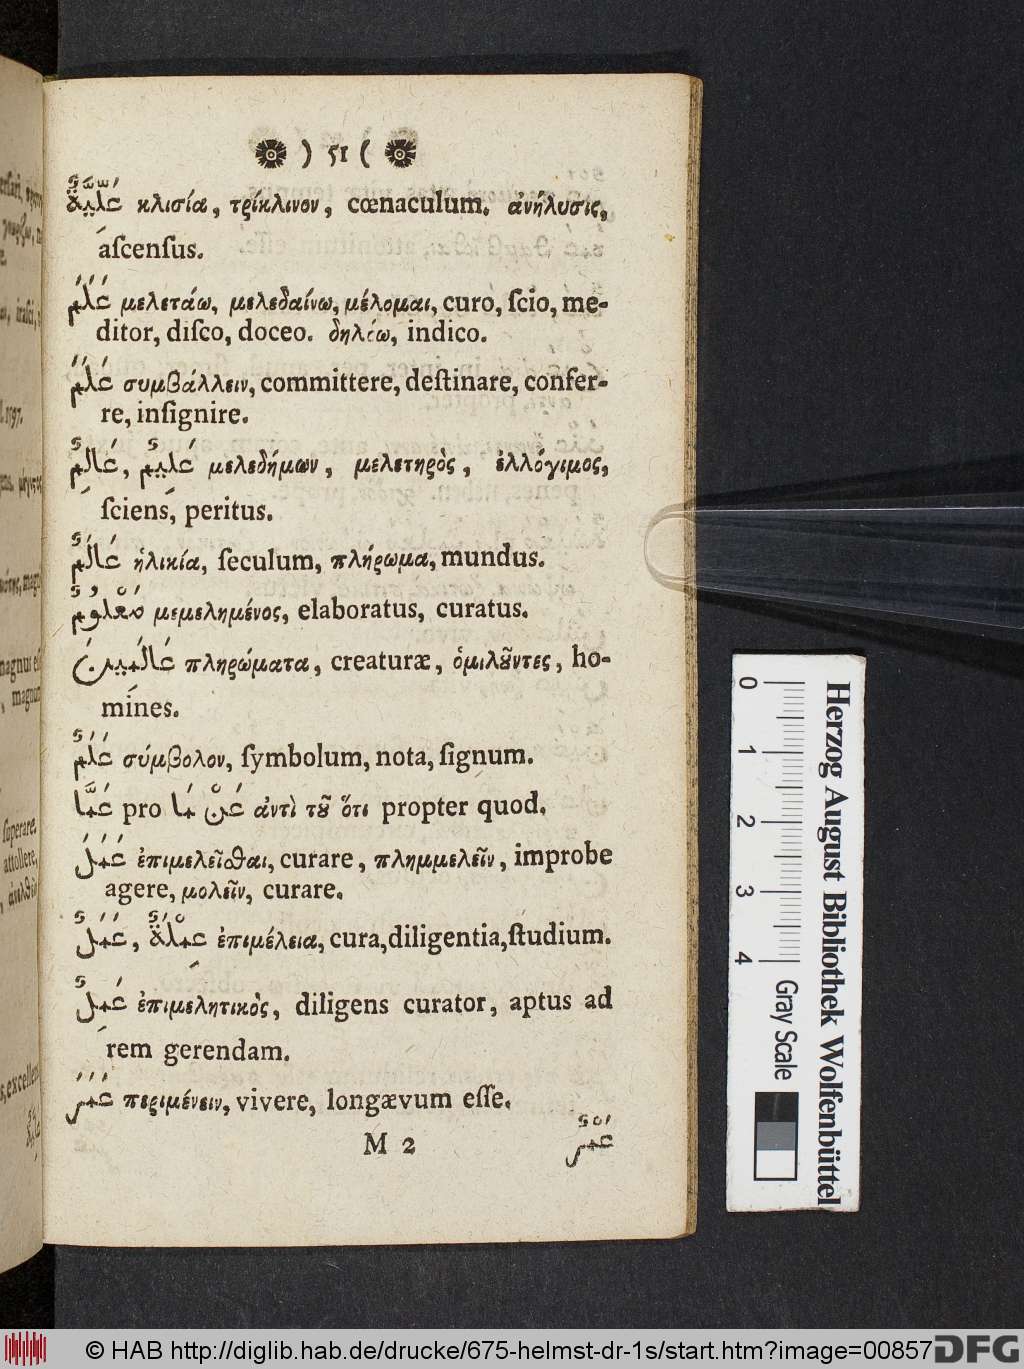 ) 51 (
عُلِّيَّةٌ κλισία, τρίκλινον, cœnaculum. ἀνήλυσις,
aſcenſus.
عَلِمَ μελετάω, μελεδαίνω, μέλομαι, curo, ſcio, me-
ditor, diſco, doceo. δηλέω, indico.
عَلَّمَ συμβάλλειν, committere, deſtinare, confer-
re, inſignire.
عَالِمٌ, عَلِيمٌ μελεδήμων, μελετηρὸς, ἐλλόγιμος,
ſciens, peritus.
عَالَمٌ ἡλικία, ſeculum, πλήρωμα, mundus.
مَعْلُومٌ μεμελημένος, elaboratus, curatus.
عَالَمِينَ πληρώματα, creaturæ, ὁμιλοῦντες, ho-
mines.
عَلَمٌ σύμβολον, ſymbolum, nota, ſignum.
عَمَّا pro عَنْ مَا ἀντὶ τοῦ ὅτι propter quod.
عَمِلَ ἐπιμελεῖσθαι, curare, πλημμελεῖν, improbe
agere, μολεῖν, curare.
عَمَلٌ, عَمْلَةٌ ἐπιμέλεια, cura, diligentia, ſtudium.
عَمِلٌ ἐπιμελητικὸς, diligens curator, aptus ad
rem gerendam.
عَمَرَ περιμένειν, vivere, longævum eſſe.
M 2 عَمْرٌ
0 1 2 3 4
Gray Scale
Herzog August Bibliothek Wolfenbüttel
© HAB http://diglib.hab.de/drucke/675-helmst-dr-1s/start.htm?image=00857
DFG